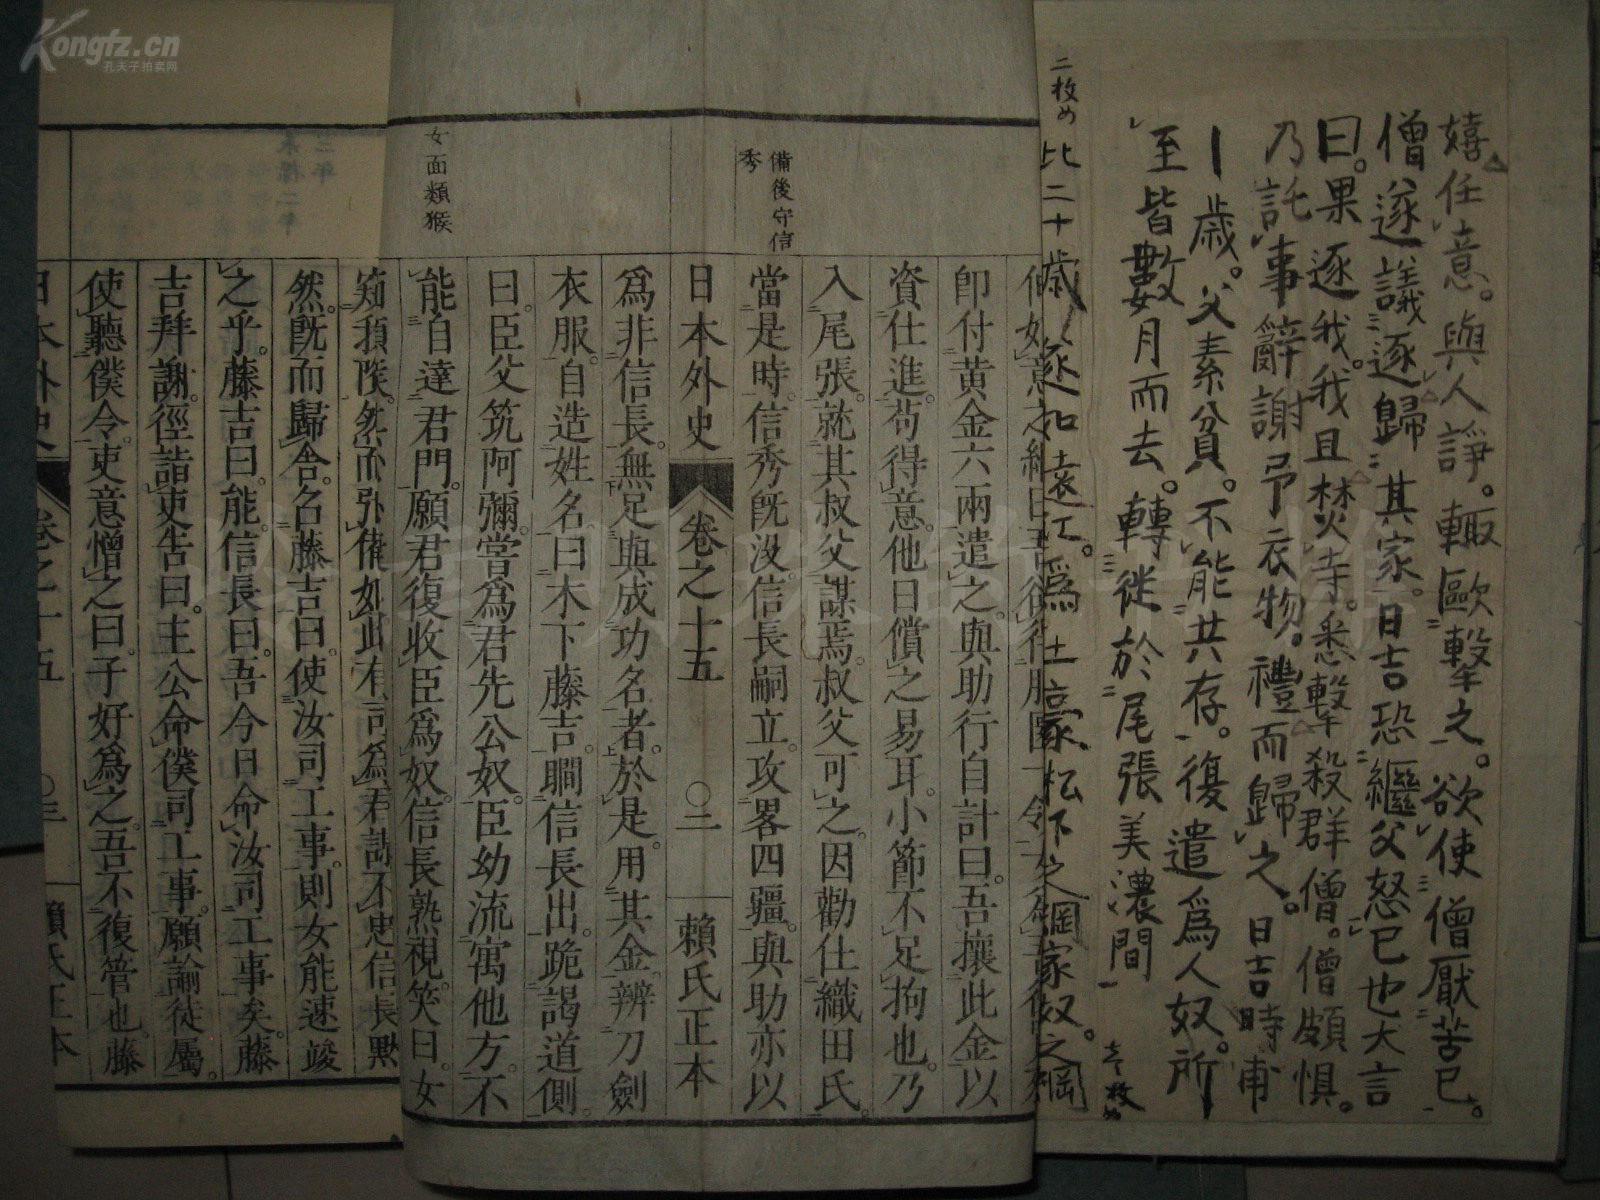 嬉任意。與人諍。輙毆擊之。欲使僧厭苦已。
僧遂議逐歸其家。日吉恐繼父怒已也大言
曰。果逐我。我且焚寺。悉擊殺群僧。僧頗惧。
乃託事辭謝予衣物。禮而歸之。日吉時甫
十歲。父素貧。不能共存。復遣爲人奴。所
至皆數月而去。轉從於尾張美濃間
壱枚め
二枚め
比二十歲
備後守信
秀
女面類猴
卽付黄金六兩遣之。與助行自計曰。吾攘此金以
資仕進。苟得意。他日償之易耳。小節不足拘也。乃
入尾張。就其叔父謀焉。叔父可之。因勸仕織田氏。
當是時。信秀旣没。信長嗣立。攻畧四疆。與助亦以
日本外史 卷之十五 〇二 賴氏正本
爲非信長。無足與成功名者。於是。用其金。辨刀劍
衣服。自造姓名。曰木下藤吉。瞷信長出。跪謁道側
曰。臣父筑阿彌。嘗爲君先公奴。臣幼流寓他方。不
能自達君門。願君復收臣爲奴。信長熟視。笑曰。女
然。旣而歸舍。名藤吉曰。使汝司工事。則女能速竣
之乎。藤吉曰。能。信長曰。吾今日命汝司工事矣。藤
吉拜謝。徑詣吏告曰。主公命僕司工事。願諭徒屬。
使聽僕令。吏意憎之曰。子好爲之。吾不復管也。藤
日本外史 卷之十五 〇三 賴氏正本
Kongfz.cn
孔夫子拍卖网